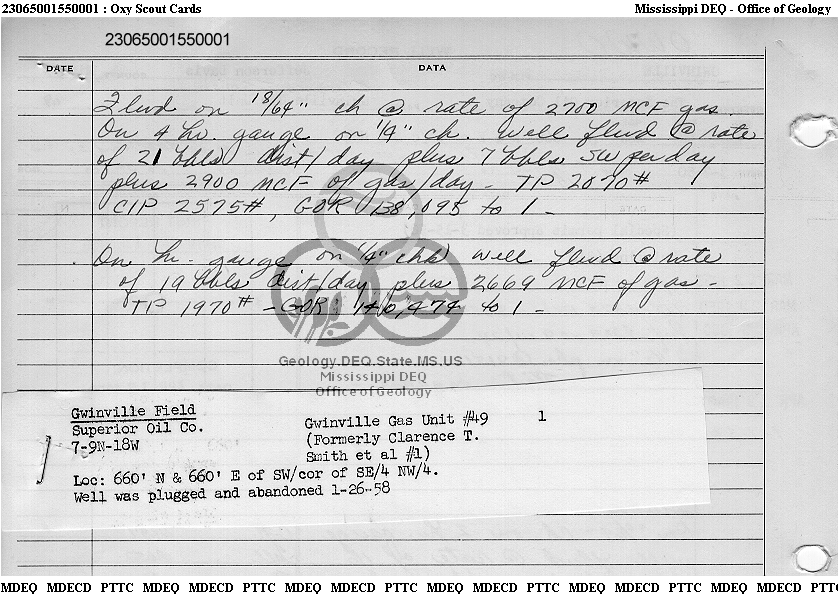 23065001550001 : Oxy Scout Cards
Mississippi DEQ - Office of Geology
23065001550001
DATE
DATA
Flwd on 18/64" ch @ rate of 2700 MCF gas.
On 4 hr. gauge on 1/4" ch. Well flwd @ rate
of 21 bbls dist/day plus 7 bbls SW per day
plus 2900 MCF of gas/day - TP 2070#
CIP 2575#, GOR 138,095 to 1 -
On hr. gauge on 1/4" chk well flwd @ rate
of 19 bbls dist/day plus 2669 MCF of gas -
TP 1970# - GOR: 140,474 to 1 -
Geology.DEQ.State.MS.US
Mississippi DEQ
Office of Geology
Gwinville Field
Superior Oil Co.
7-9N-18W
Gwinville Gas Unit #49 1
(Formerly Clarence T.
Smith et al #1)
Loc: 660' N & 660' E of SW/cor of SE/4 NW/4.
Well was plugged and abandoned 1-26-58
MDEQ MDECD PTTC MDEQ MDECD PTTC MDEQ MDECD PTTC MDEQ MDECD PTTC MDEQ MDECD PTTC MDEQ MDECD PTT